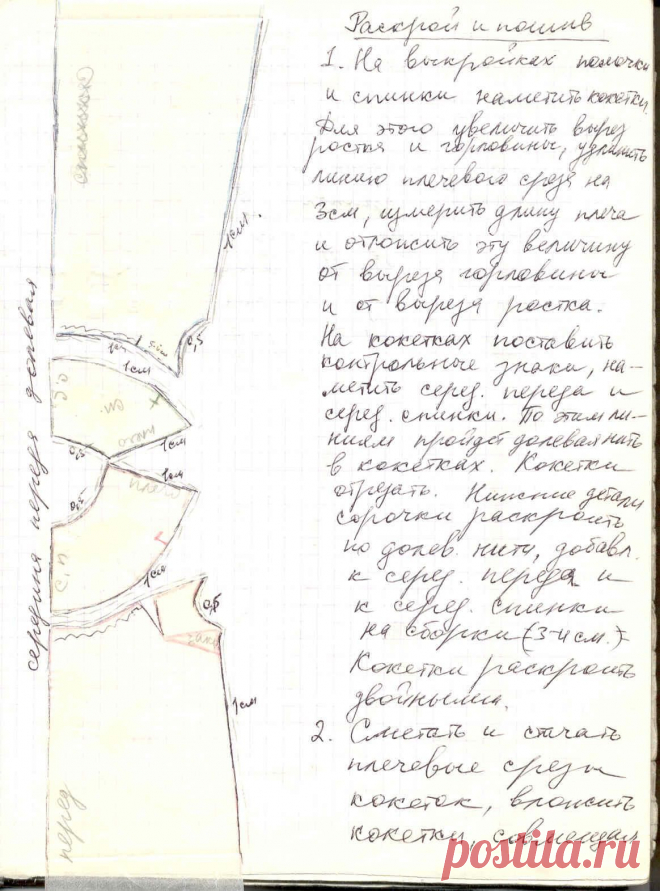 Раскрой и пошив
1. На выкройках полочки
и спинки наметить кокетки.
Для этого увеличить вырез
ростка и горловины, удлинить
линию плечевого среза на
3см, измерить длину плеча
и отложить эту величину
от выреза горловины
и от выреза ростка.
На кокетках поставить
контрольные знаки, на-
метить серед. переда и
серед. спинки. По этим ли-
ниям пройдет долевая нить
в кокетках. Кокетки
отрезать. Нижние детали
сорочки раскроить
по долев. нити, добавл.
к серед. переда и
к серед. спинки
на сборки (3-4 см.)
Кокетки раскроить
двойными.
2. Сметать и стачать
плечевые срезы
кокеток, вложить
кокетки, совмещая
середина переда долевая
1см.
0,5
1см
сп.
плечо
0,5
1см
1см
плечо
0,5
с.п
1см
0,5
1см
перед
postila.ru